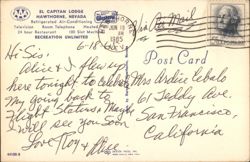 AAA
EL CAPITAN LODGE
HAWTHORNE, NEVADA
Refrigerated Air-Conditioning
Television Room Telephone Heated
24 Hour Restaurant 100 Slot Machines
RECREATION UNLIMITED
Via Air Mail
JUN 19
1965
6-18
Hi Sis:
Alice & I flew up
here tonight to celebrate
My going back to
Flight Status. Maybe
I will see you soon
Love Roy & Alice
Post Card
Mrs Ardie Cebalo
61 Teddy Ave.
San Francisco,
California